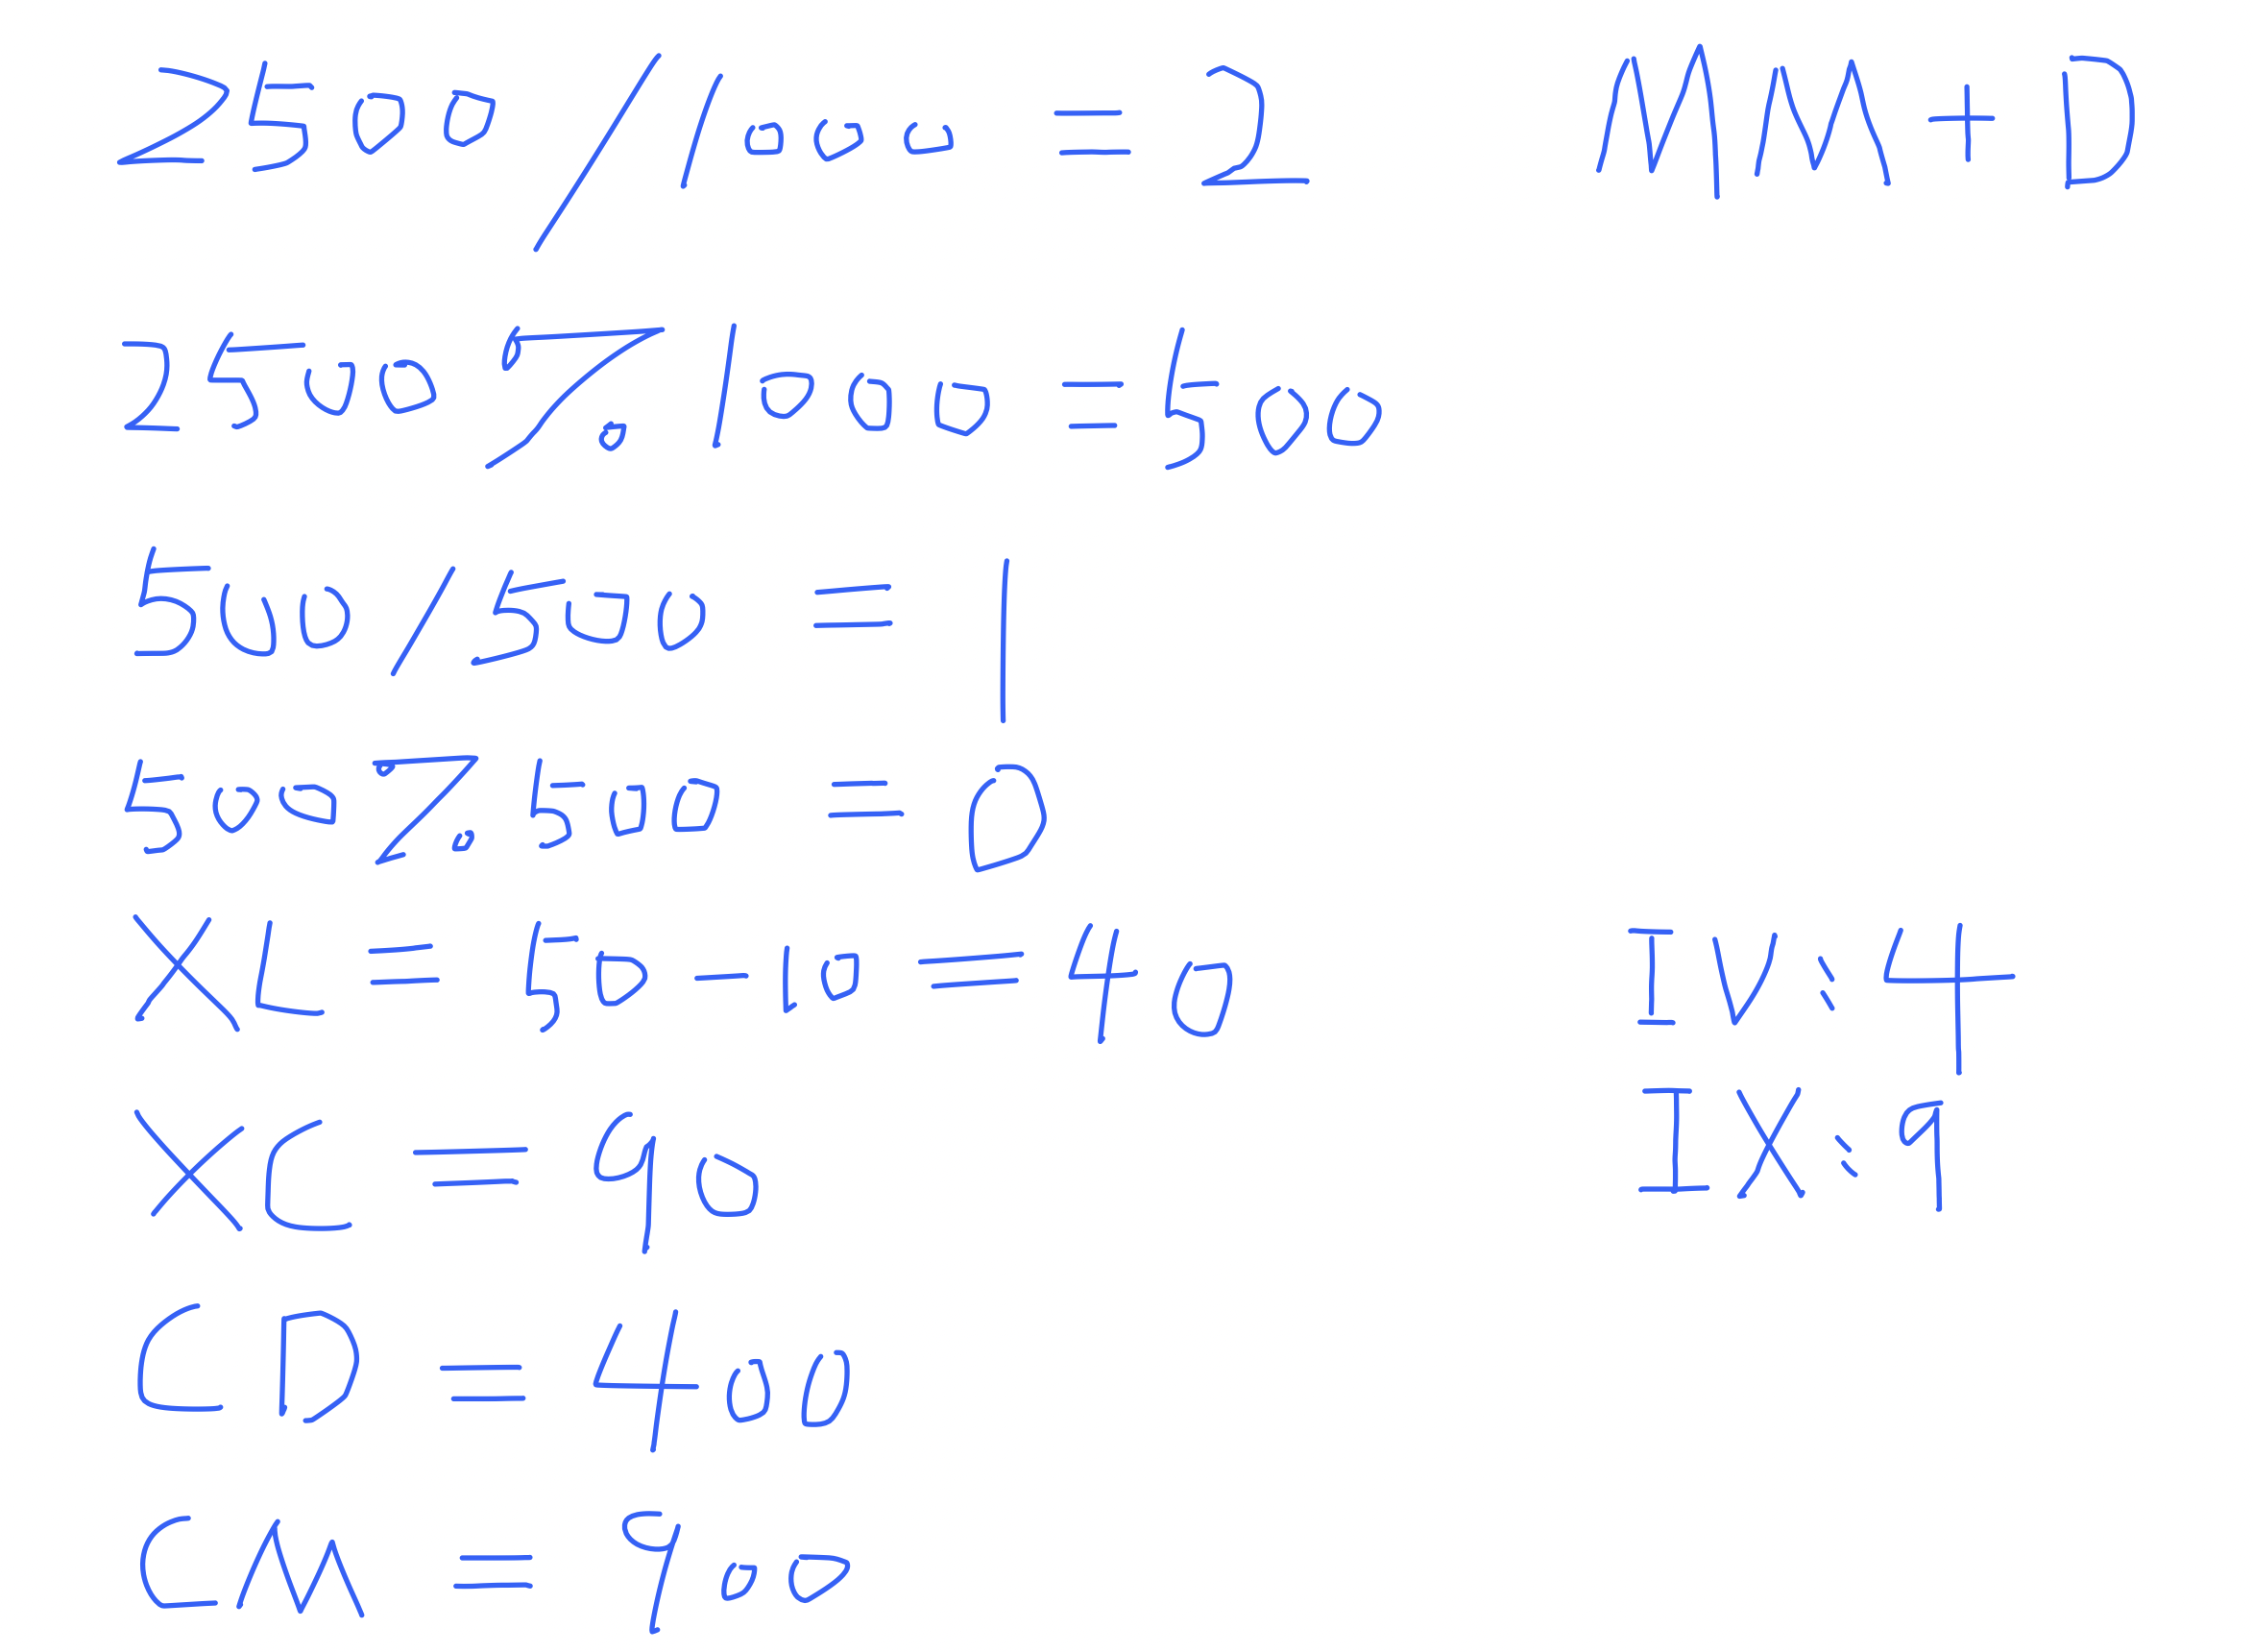 2500 / 1000 = 2 MM + D
2500 % 1000 = 500
500 / 500 = 1
500 % 500 = 0
XL = 50 - 10 = 40 IV: 4
XC = 90 IX: 9
CD = 400
CM = 900